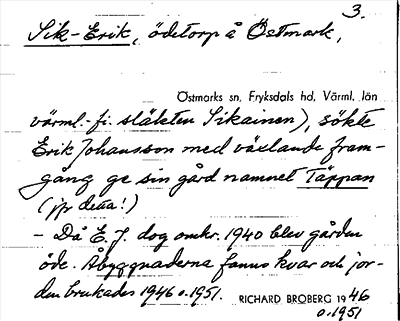 3.
Sik-Erik, ödetorp å Östmark,
Östmarks sn, Fryksdals hd, Värml. län
värml.-fi. släkten Sikainen), sökte
Erik Johansson med växlande fram-
gång ge sin gård namnet Täppan
(jfr detta!)
– Då E. J. dog omkr. 1940 blev gården
öde. Åbyggnaderna fanns kvar och jor-
den brukades 1946 o. 1951.
RICHARD BROBERG 1946
o. 1951